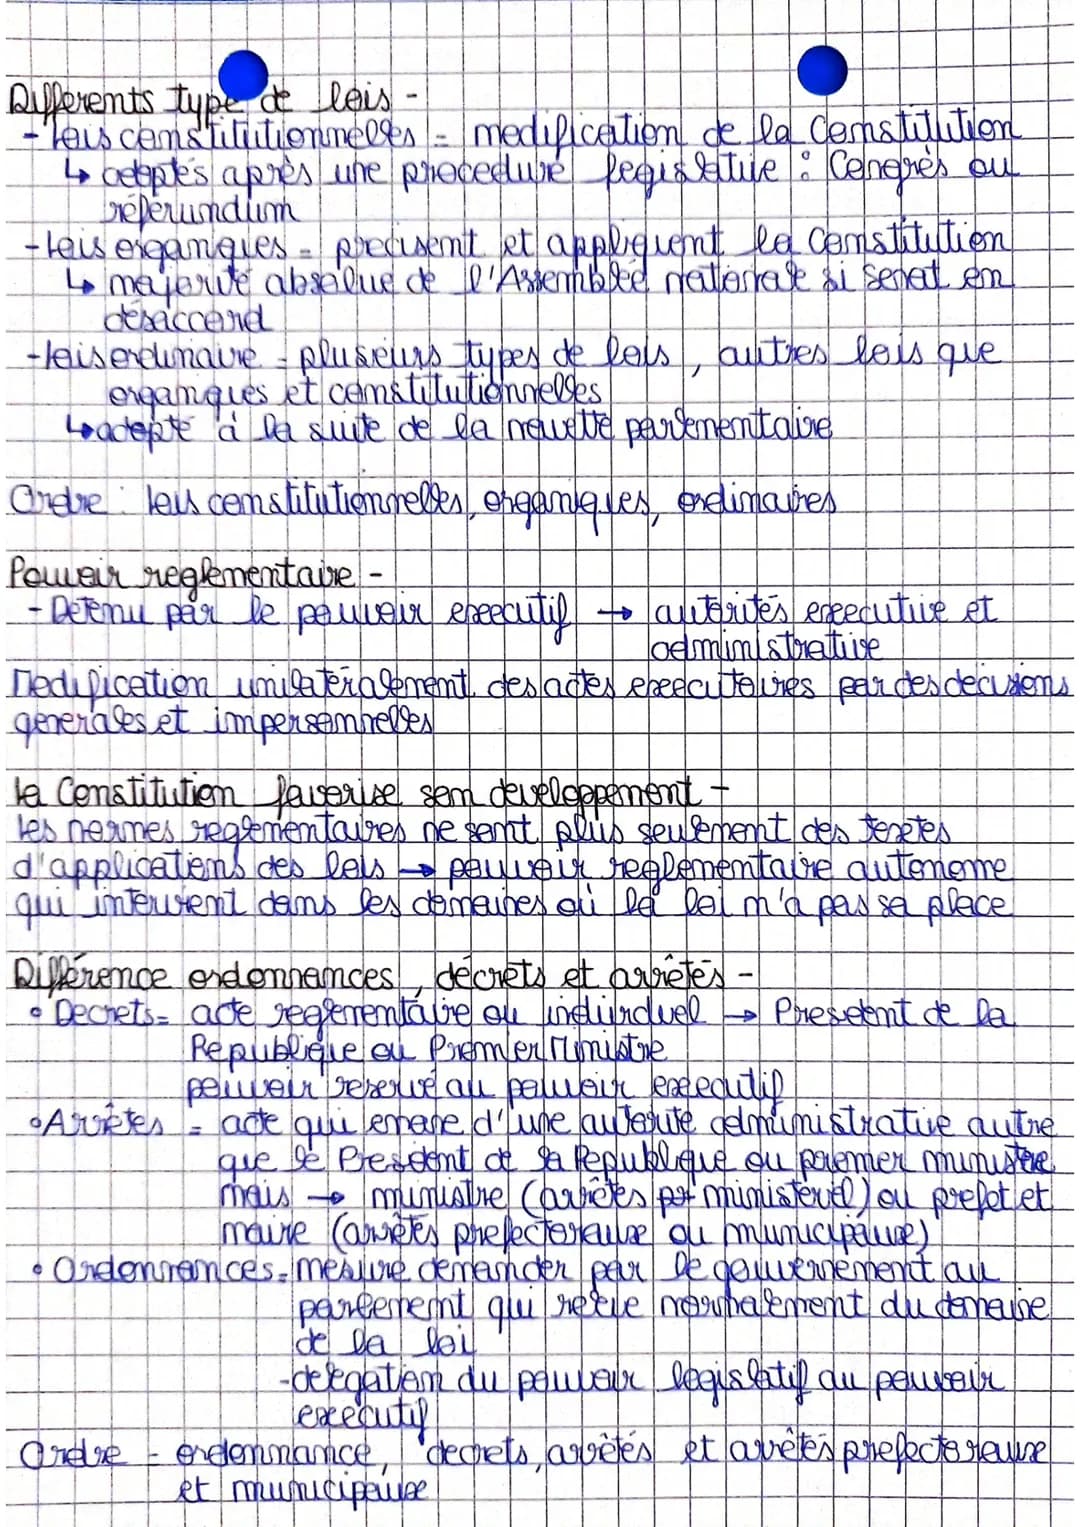 Differents type de lois -
- lois constitutionnelles = modification de la Constitution
↳ adoptés après une procedure legislative : Congrès ou
référundum
- lois organiques = precisent et appliquent la constitution
↳ majorité absolue de l'Assemblée nationale si senat en
désaccord
- lois ordinaire = plusieurs types de lois, autres lois que
organiques et constitutionnelles
↳ adopté à la suite de la navette parlementaire
Ordre : lois constitutionnelles, organiques, ordinaires
Pouvoir reglementaire -
- Détenu par le pouvoir executif → autorités executive et
administrative
Modification unilatéralement des actes executoires par des decisions
generales et impersonnelles
la Constitution favorise son developpement -
les normes reglementaires ne sont plus seulement des textes
d'applications des lois → pouvoir reglementaire autonome
qui intervient dans les domaines où la loi n'a pas sa place
Différence ordonnances, décrets et arrêtés -
• Decrets = acte reglementaire ou individuel → President de la
Republique ou Premier Ministre
pouvoir reservé au pouvoir executif
• Arrêtes = acte qui emane d'une autorité administrative autre
que le President de la Republique ou premier ministre
mais → ministre (arrêtés ministeriel) ou prefet et
maire (arrêtés prefectoraux ou municipaux)
• Ordonnances = mesure demander par le gouvernement au
parlement qui relève normalement du domaine
de la loi
- delegation du pouvoir legislatif au pouvoir
executif
Ordre - ordonnance, decrets, arrêtés et arrêtés prefectoraux
et municipaux